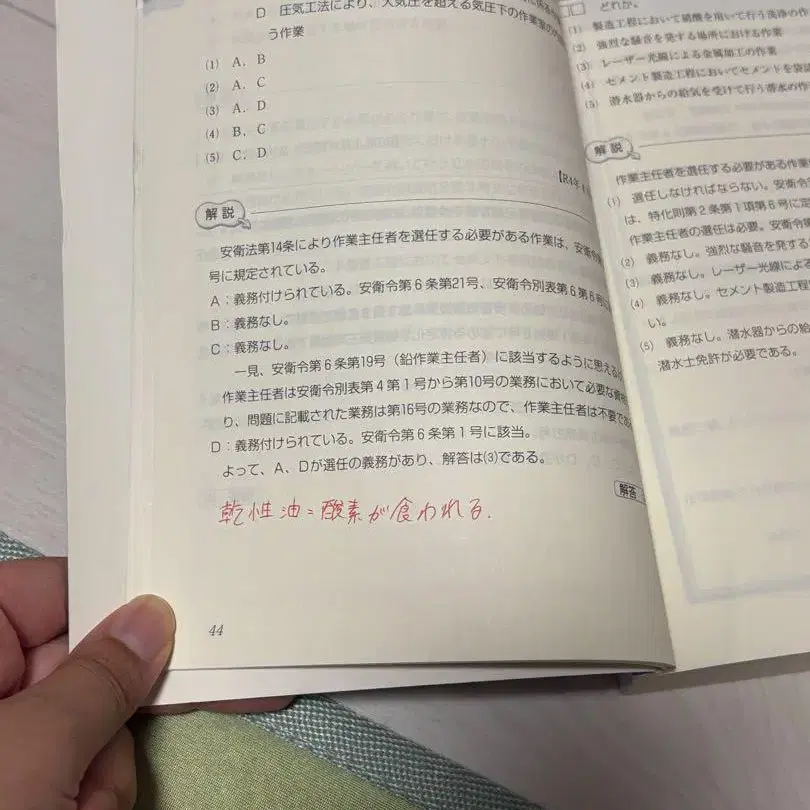 D 圧気工法により、大気圧を超える気圧下の作業室の
う作業
(1) A, B
(2) A, C
(3) A, D
(4) B, C
(5) C, D
【R4年
解説
安衛法第14条により作業主任者を選任する必要がある作業は、安衛令
号に規定されている。
A：義務付けられている。安衛令第6条第21号、安衛令別表第6第
B：義務なし。
C：義務なし。
一見、安衛令第6条第19号（鉛作業主任者）に該当するように思える
作業主任者は安衛令別表第4第1号から第10号の業務において必要な資格
り、問題に記載された業務は第16号の業務なので、作業主任者は不要であ
D：義務付けられている。安衛令第6条第1号に該当。
よって、A、Dが選任の義務があり、解答は(3)である。
解答
乾性油：酸素が食われる.
44
どれか。
(1) 製造工程において硝酸を用いて行う洗浄の作
(2) 強烈な騒音を発する場所における作業
(3) レーザー光線による金属加工の作業
(4) セメント製造工程においてセメントを袋詰
(5) 潜水器からの給気を受けて行う潜水の作
解説
作業主任者を選任する必要がある作業
(1) 選任しなければならない。安衛令
は、特化則第2条第1項第6号に定
作業主任者の選任は必要。安衛令第
(2) 義務なし。強烈な騒音を発する
(3) 義務なし。レーザー光線による
(4) 義務なし。セメント製造工程
い。
(5) 義務なし。潜水器からの給
潜水士免許が必要である。